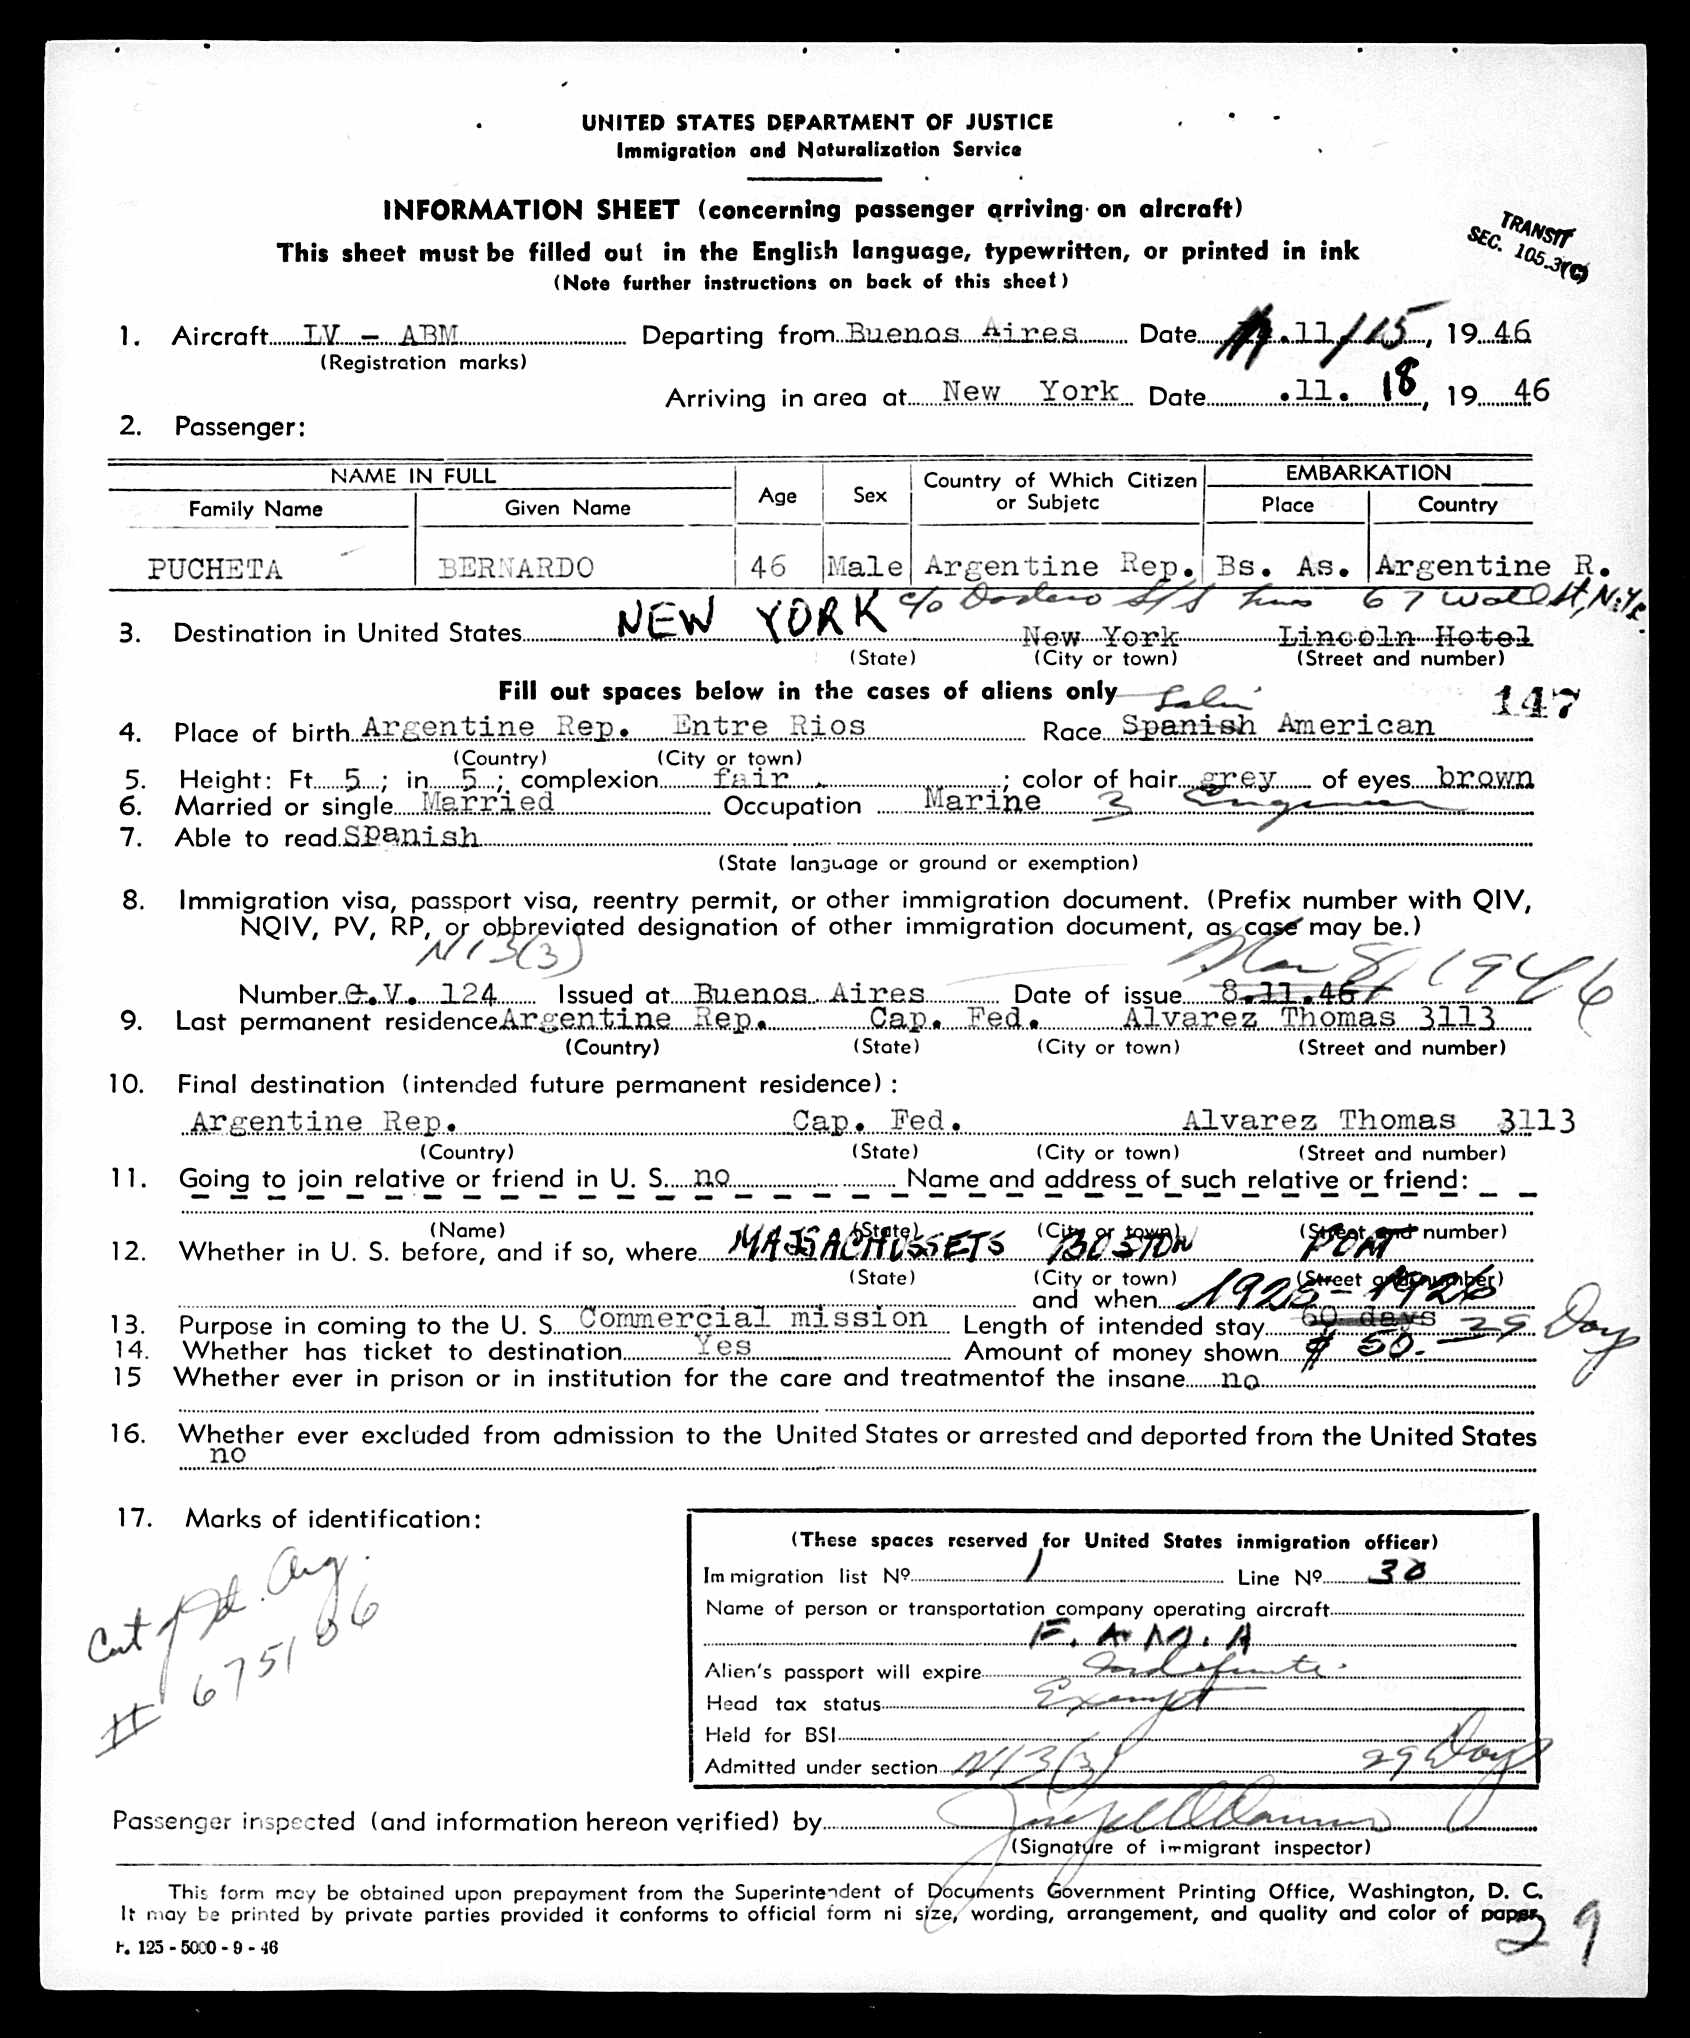 UNITED STATES DEPARTMENT OF JUSTICE
Immigration and Naturalization Service
INFORMATION SHEET (concerning passenger arriving on aircraft)
This sheet must be filled out in the English language, typewritten, or printed in ink
(Note further instructions on back of this sheet)
TRANSIT
SEC. 105.3(C)
1. Aircraft LV - ABM Departing from Buenos Aires Date .11/15, 19 46
(Registration marks)
Arriving in area at New York Date .11. 18, 19 46
2. Passenger:
NAME IN FULL Age Sex Country of Which Citizen or Subjetc EMBARKATION
Family Name Given Name Place Country
PUCHETA BERNARDO 46 Male Argentine Rep. Bs. As. Argentine R.
c/o Dodero S/S Lines 67 Wall St, N.Y.
3. Destination in United States NEW YORK New York Lincoln Hotel
(State) (City or town) (Street and number)
Fill out spaces below in the cases of aliens only
147
4. Place of birth Argentine Rep. Entre Rios Race Spanish American
(Country) (City or town)
5. Height: Ft. 5 ; in. 5 ; complexion fair ; color of hair grey of eyes brown
6. Married or single Married Occupation Marine 3 Engineer
7. Able to read Spanish
(State language or ground or exemption)
8. Immigration visa, passport visa, reentry permit, or other immigration document. (Prefix number with QIV,
NQIV, PV, RP, or obbreviated designation of other immigration document, as case may be.)
N13(3) Nov 8, 1946
Number C.V. 124 Issued at Buenos Aires Date of issue 8.11.46
9. Last permanent residence Argentine Rep. Cap. Fed. Alvarez Thomas 3113
(Country) (State) (City or town) (Street and number)
10. Final destination (intended future permanent residence) :
Argentine Rep. Cap. Fed. Alvarez Thomas 3113
(Country) (State) (City or town) (Street and number)
11. Going to join relative or friend in U. S. no Name and address of such relative or friend:
(Name) (State) (City or town) (Street and number)
12. Whether in U. S. before, and if so, where MASSACHUSSETS BOSTON PORT
(State) (City or town) (Street and number)
and when 1925-1926
13. Purpose in coming to the U. S. Commercial mission Length of intended stay 60 days 29 Days
14. Whether has ticket to destination Yes Amount of money shown $ 50.-
15 Whether ever in prison or in institution for the care and treatmentof the insane no
16. Whether ever excluded from admission to the United States or arrested and deported from the United States
no
17. Marks of identification:
Cert of Id. Arg.
# 675186
(These spaces reserved for United States inmigration officer)
Immigration list Nº 1 Line Nº 30
Name of person or transportation company operating aircraft
F.A.M.A
Alien's passport will expire Indefinite.
Head tax status Exempt
Held for BSI
Admitted under section N13(3) 29 Days
Passenger inspected (and information hereon verified) by
(Signature of immigrant inspector)
This form may be obtained upon prepayment from the Superintendent of Documents Government Printing Office, Washington, D. C.
It may be printed by private parties provided it conforms to official form ni size, wording, arrangement, and quality and color of paper
29
F. 125 - 5000 - 9 - 46